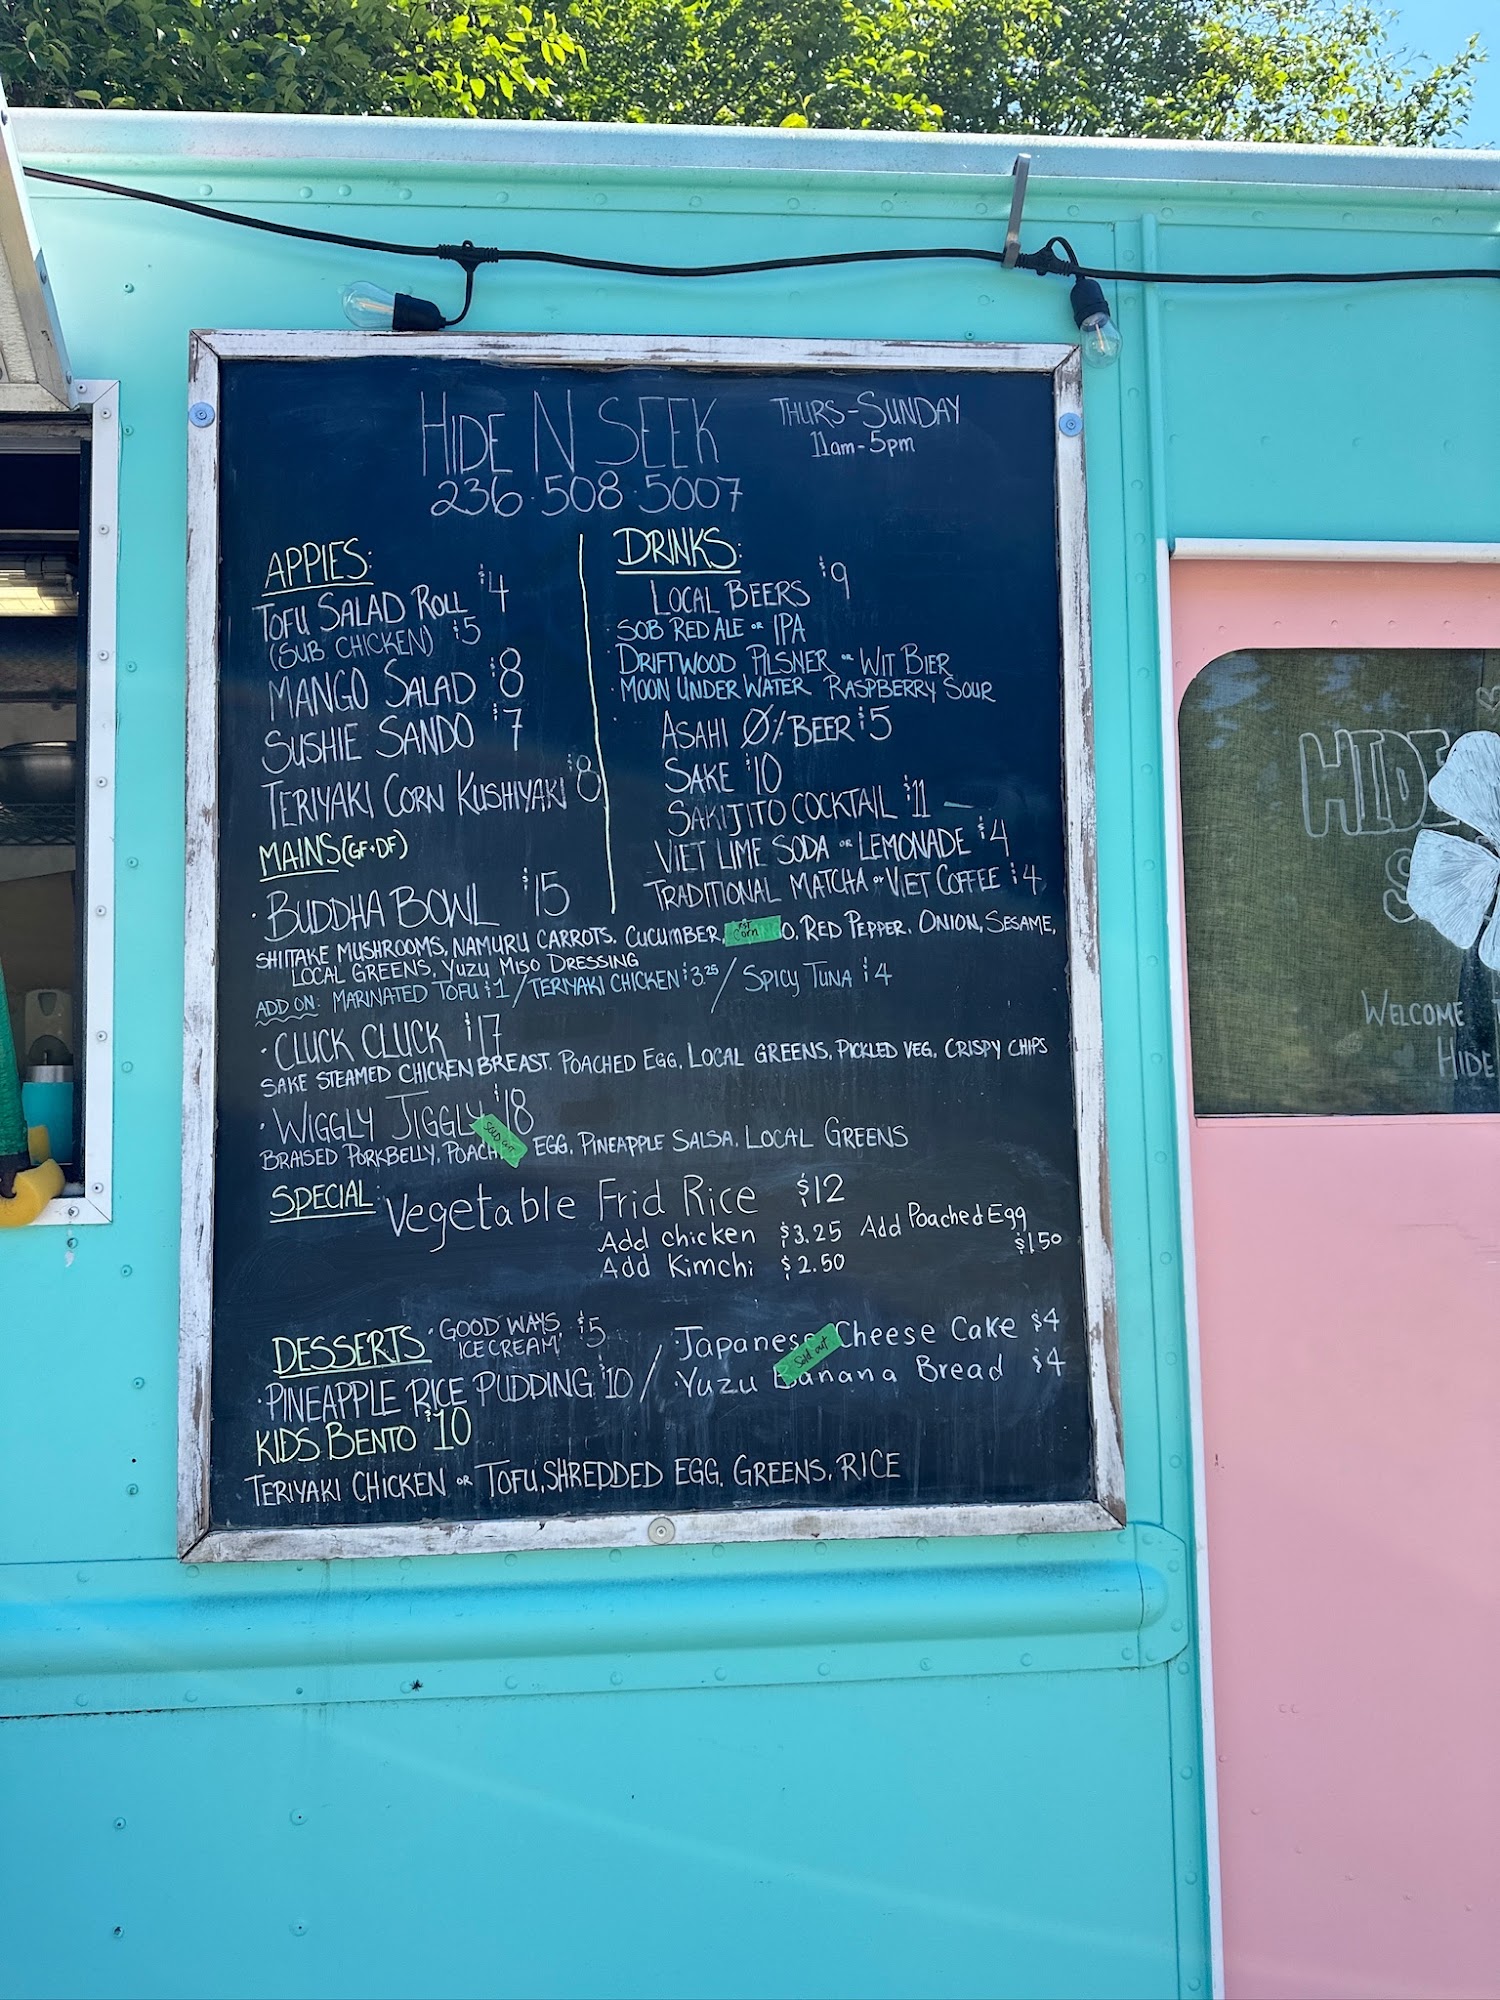 HIDE N SEEK
236·508·5007
THURS-SUNDAY
11am-5pm
APPIES:
TOFU SALAD ROLL $4
(SUB CHICKEN) $5
MANGO SALAD $8
SUSHIE SANDO $7
TERIYAKI CORN KUSHIYAKI $8
DRINKS:
LOCAL BEERS $9
· SOB RED ALE OR IPA
· DRIFTWOOD PILSNER OR WIT BIER
· MOON UNDER WATER RASPBERRY SOUR
ASAHI 0% BEER $5
SAKE $10
SAKIJITO COCKTAIL $11
VIET LIME SODA OR LEMONADE $4
TRADITIONAL MATCHA OR VIET COFFEE $4
MAINS (GF+DF)
· BUDDHA BOWL $15
SHITAKE MUSHROOMS, NAMURU CARROTS, CUCUMBER, Corn O, RED PEPPER, ONION, SESAME,
LOCAL GREENS, YUZU MISO DRESSING
ADD ON: MARINATED TOFU $1 / TERIYAKI CHICKEN $3.25 / SPICY TUNA $4
· CLUCK CLUCK $17
SAKE STEAMED CHICKEN BREAST, POACHED EGG, LOCAL GREENS, PICKLED VEG, CRISPY CHIPS
· WIGGLY JIGGLY $18
SOLD OUT
BRAISED PORKBELLY, POACH EGG, PINEAPPLE SALSA, LOCAL GREENS
SPECIAL: Vegetable Frid Rice $12
Add chicken $3.25 Add Poached Egg $1.50
Add Kimchi $2.50
DESSERTS · GOOD WAYS ICE CREAM $5
· PINEAPPLE RICE PUDDING $10 /
· Japanese Cheese Cake $4
Sold out
· Yuzu Banana Bread $4
KIDS BENTO $10
TERIYAKI CHICKEN OR TOFU, SHREDDED EGG, GREENS, RICE
HIDE
S
WELCOME
HIDE